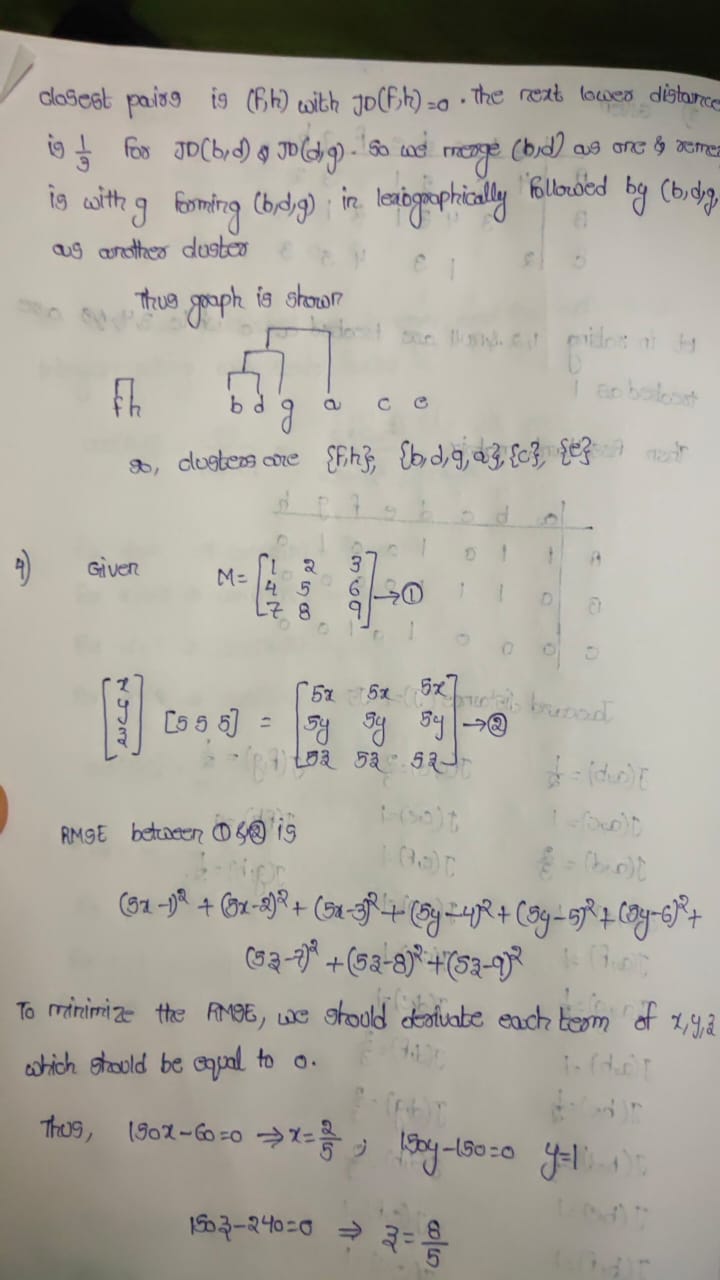 closest pairs is (f,h) with JD(f,h)=0. The next lower distance
is 1/9 for JD(b,d) & JD(d,g). So we merge (b,d) as one &
is with g forming (b,d,g) in lexiographically followed by (b,d,g,
as another cluster
Thus graph is shown
f h b d g a c e
so, clusters are {f,h}, {b,d,g,a}, {c}, {e}
4) Given M = [1 2 3
4 5 6
7 8 9] → ①
[x
y
z] [5 5 5] = [5x 5x 5x
5y 5y 5y
5z 5z 5z] → ②
RMSE between ① & ② is
(5x-1)² + (5x-2)² + (5x-3)² + (5y-4)² + (5y-5)² + (5y-6)² +
(5z-7)² + (5z-8)² + (5z-9)²
To minimize the RMSE, we should derivate each term of x,y,z
which should be equal to 0.
Thus, 150x-60=0 ⇒ x=2/5 , 150y-150=0 y=1
150z-240=0 ⇒ z=8/5